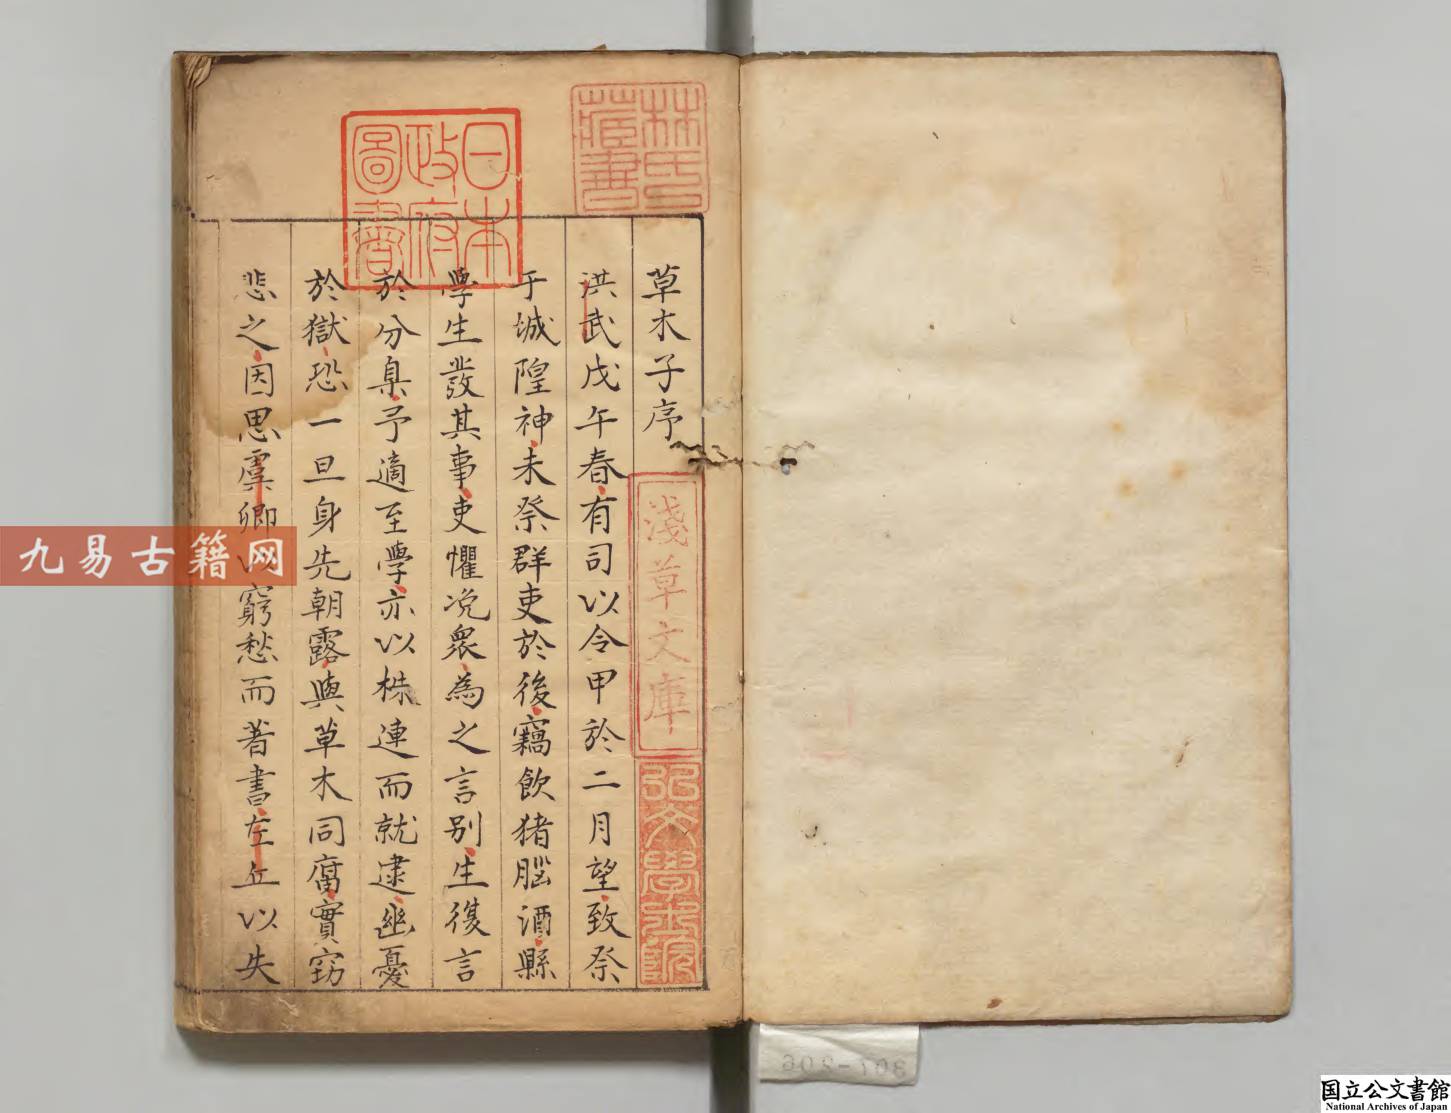 草木子序
洪武戊午春有司以令甲於二月望致祭
于城隍神未祭群吏於後竊飲猪腦酒縣
學生發其事吏懼况衆為之言別生復言
於分臬予適至學亦以株連而就逮幽憂
於獄恐一旦身先朝露與草木同腐實窃
悲之因思虞卿以窮愁而著書左丘以失
林氏藏書
日本政府圖書
淺草文庫
弘文學士院
九易古籍网
307-206
国立公文書館
National Archives of Japan